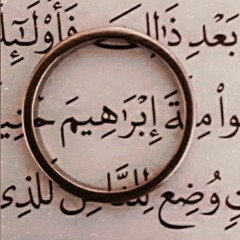 بَعْدِ ذَٰلِكَ فَأُوْلَٰئِ
وا مِلَّةَ إِبْرَاهِيمَ حَنِي
تٍ وُضِعَ لِلنَّاسِ لَلَّذِي